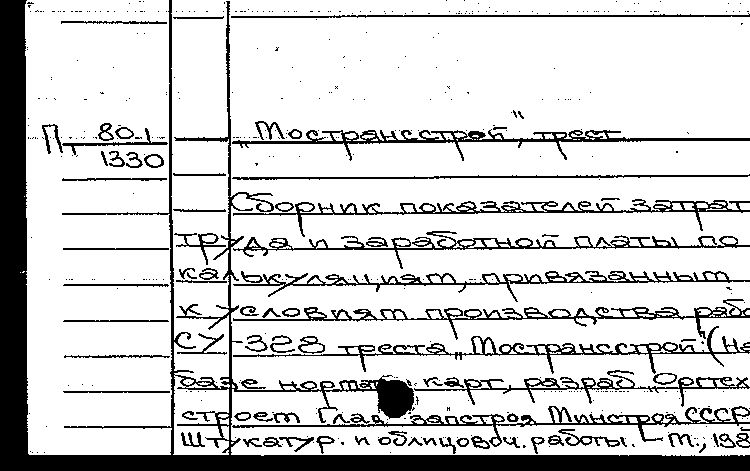 Пт 80.1
1330
„Мострансстрой", трест
Сборник показателей затрат
труда и заработной платы по
калькуляциям, привязанным
к условиям производства рабо
СУ-328 треста „Мострансстрой" (На
базе норматив. карт, разраб. Оргтех
строем Главзапстроя Минстроя СССР
Штукатур. и облицовоч. работы. - М., 198